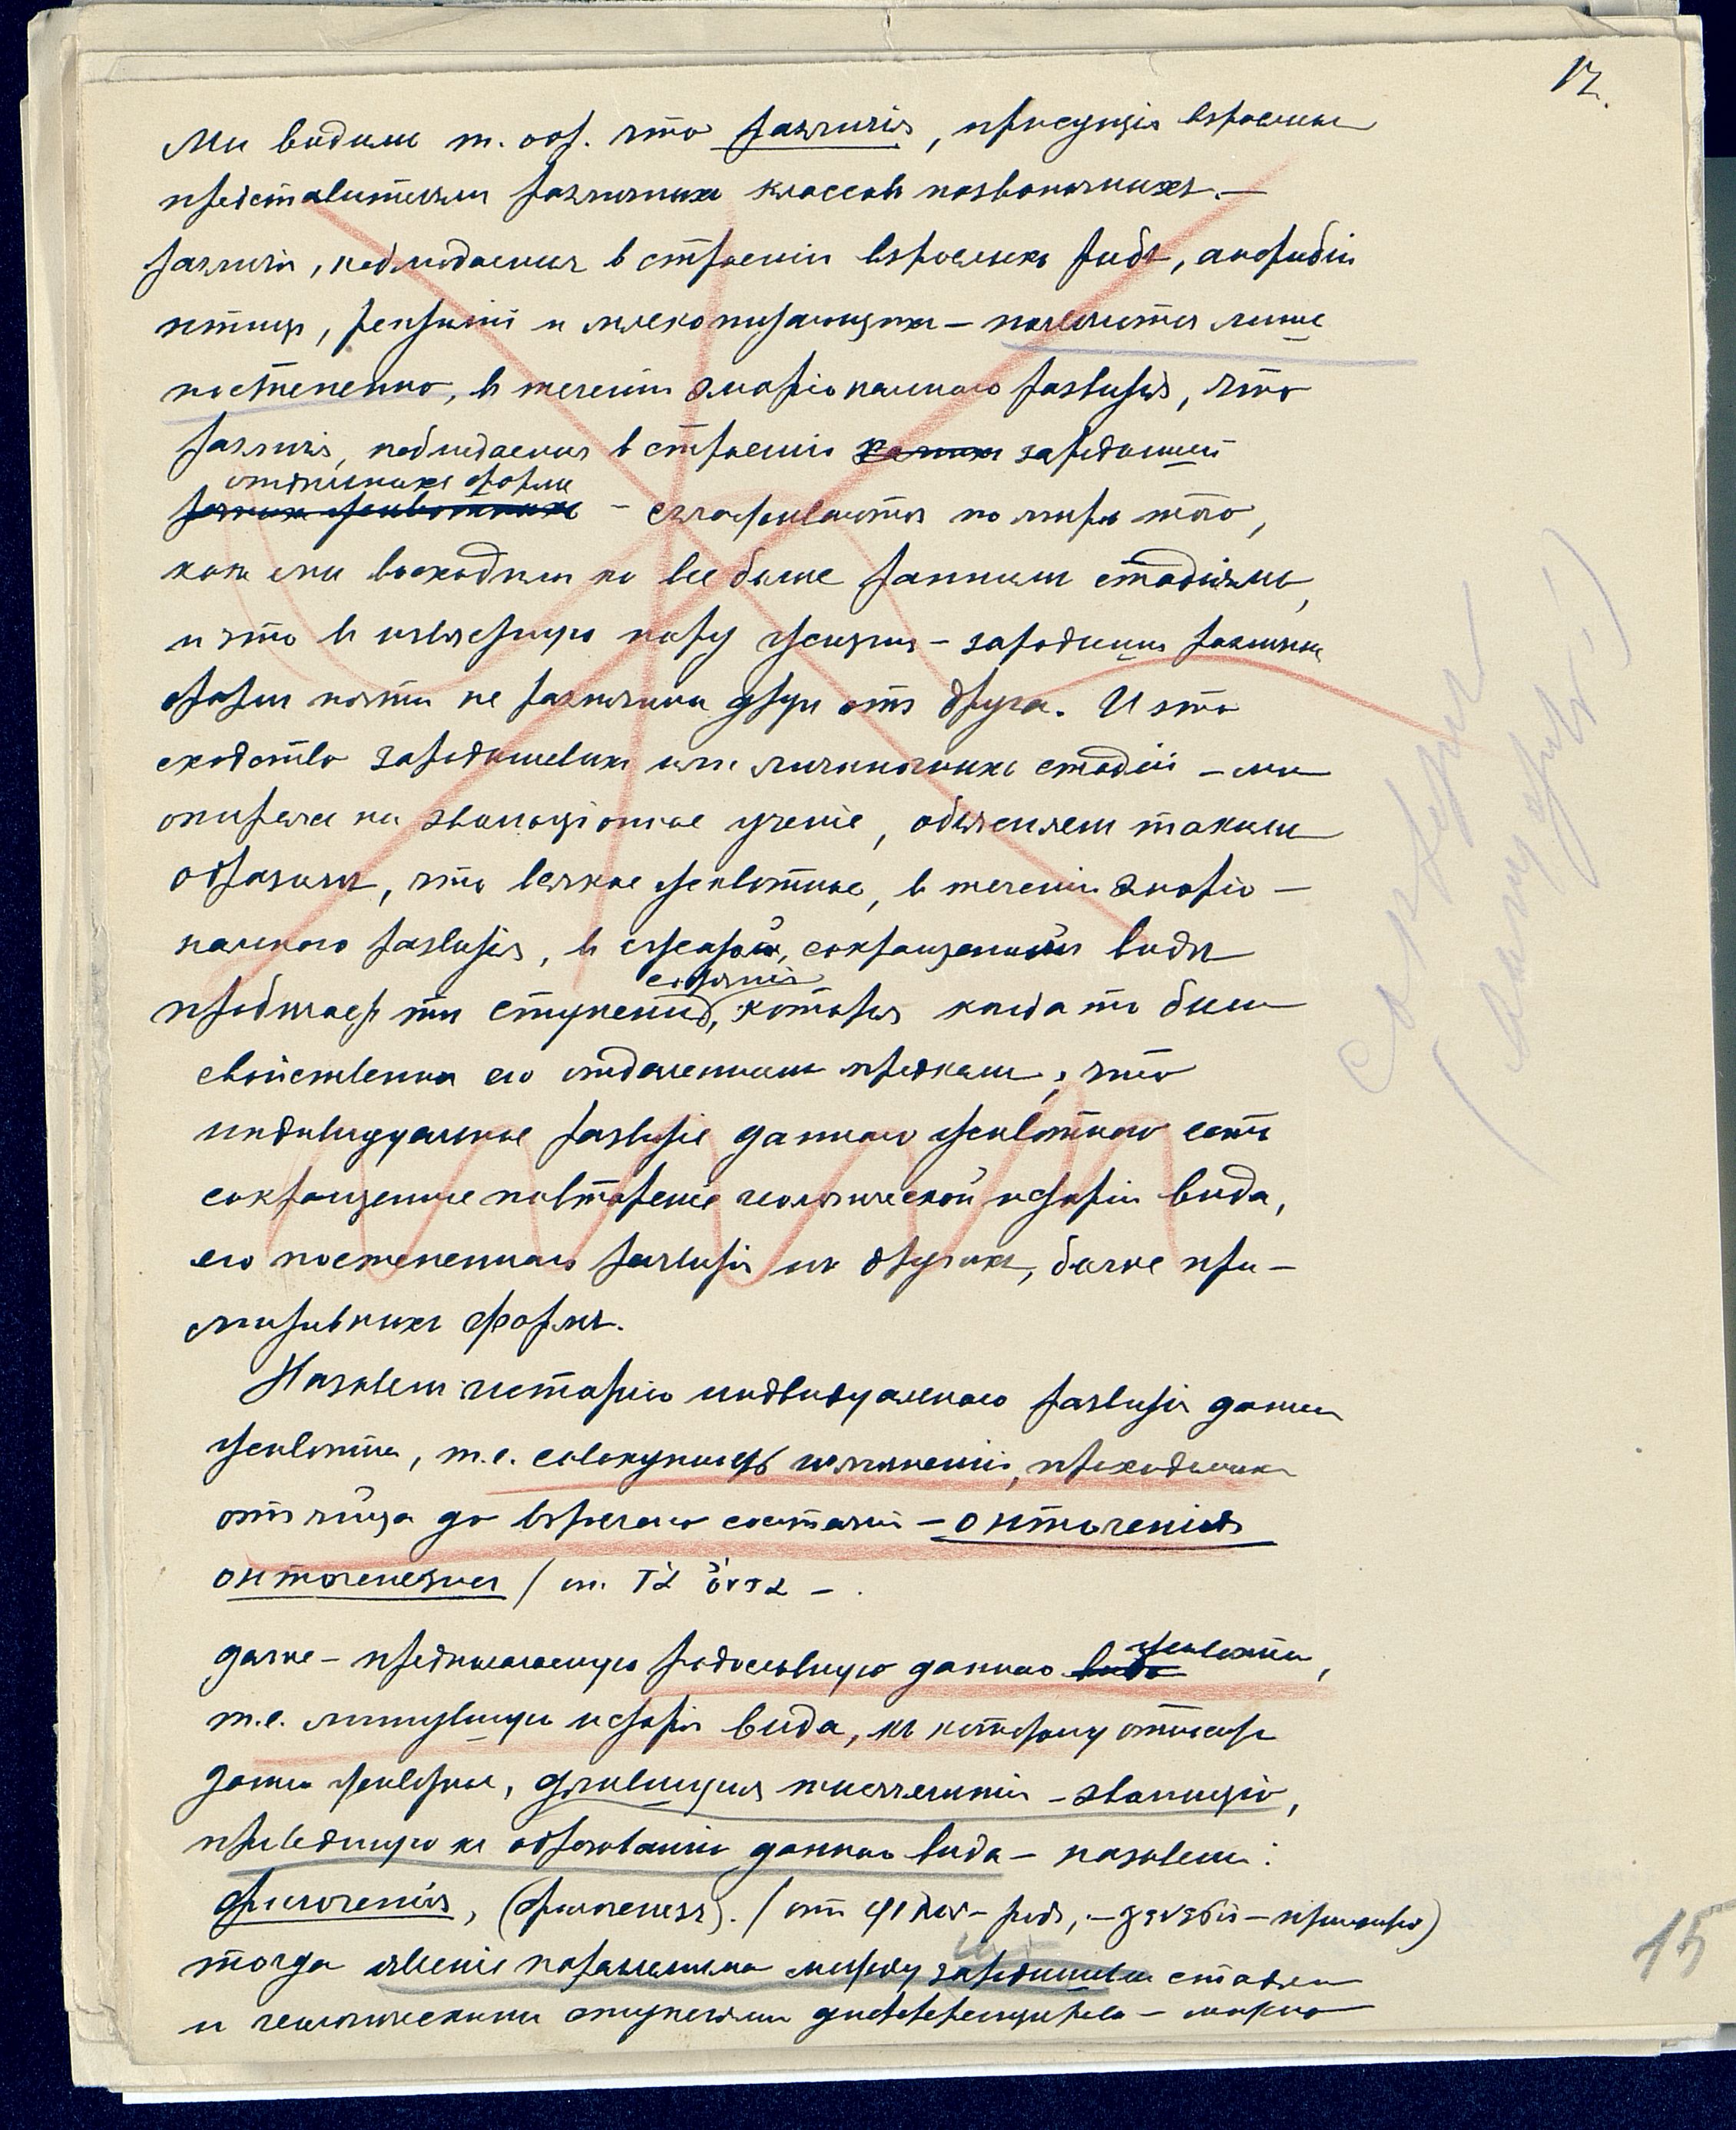 12.
Мы видим т. обр. что различия, присущія взрослым
представителям различных классов позвоночныхъ. —
различія, наблюдаемыя в строеніи взрослыхъ рыбъ, амфибій
птицъ, рептилій и млекопитающихъ — появляются лишь
постепенно, въ теченіи эмбріональнаго развитія, что
различія, наблюдаемыя в строеніи зародышей
отдельныхъ формъ
— сглаживаются по мѣрѣ того,
какъ мы восходимъ ко все более раннимъ стадіямъ,
и что въ извѣстную пору жизни — зародыши различныхъ
формъ почти не различимы другъ отъ друга. И это
сходство зародышевыхъ или личиночныхъ стадій — мы
опираясь на эволюціонное ученіе, объясняем такимъ
образомъ, что всякое животное, в теченіи эмбріо-
нальнаго развитія, въ сжатой, сокращенной видѣ
строенія
продѣлаетъ ти ступени, которыя когда то были
свойственны его отдаленнымъ предкамъ, что
индивидуальное развитіе даннаго животнаго есть
сокращенное повтореніе геологической исторіи вида,
его постепеннаго развитія изъ другихъ, болѣе при-
митивныхъ формъ.
Назовемъ исторію индивидуальнаго развитія даннаго
животнаго, т.е. совокупность измѣненій, проходимыхъ
отъ яйца до взрослаго состоянія — онтогеніей
онтогенезисъ / от. τὰ ὄντα —
далѣе — предполагаемую родословную даннаго животнаго,
т.е. минувшую исторію вида, къ которому относится
данное животное, длившуюся тысячелѣтія — эволюцію,
приведшую къ образованію даннаго вида — назовемъ:
филогенія, (филогенезъ). / отъ φῦλον — родъ, —
тогда явленіе параллелизма между зародышевыми стадіями
и геологическими ступенями — можно
15